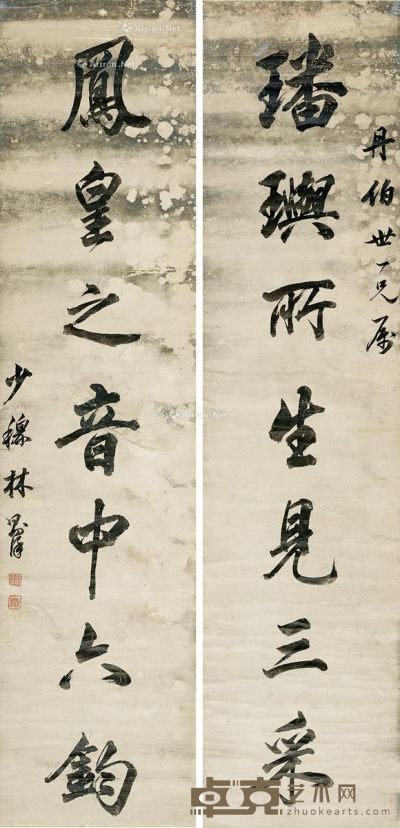 丹伯世一兄属
璠璵所生見三采
鳳皇之音中六鈞
少穆林則徐
Artron.Net
卓克艺术网
zhuokearts.com